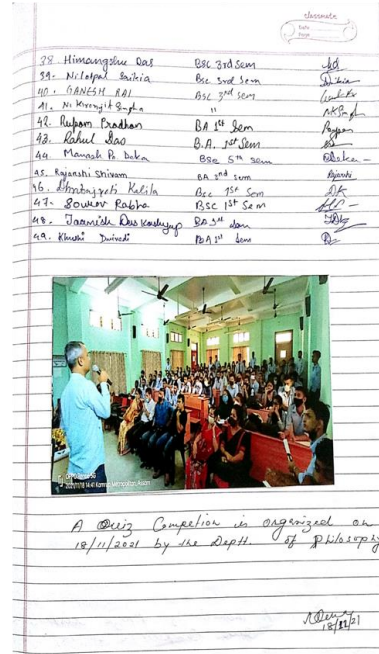 classmate
Date
Page
38. Himangshu Das BSc 3rd Sem
39. Nilotpal Saikia BSc 3rd Sem
40. GANESH RAI BSC 3rd Sem
41. N. Kironjit Singha "
42. Rupam Pradhan BA 1st Sem
43. Rahul Das B.A. 1st Sem
44. Manash Pr. Deka BSc 5th sem
45. Rajanshi Shivam BA 2nd sem Rajanshi
46. Kalita BSc 1st Sem
47. Sourav Rabha BSC 1st Sem
48. Das Kashyap BA 1st Sem
49. Khushi Dwivedi BA 1st Sem
2021/11/18 14:41 Kamrup Metropolitan, Assam
A Quiz Competion is organized on
18/11/2021 by the Deptt. of Philosophy
18/11/21